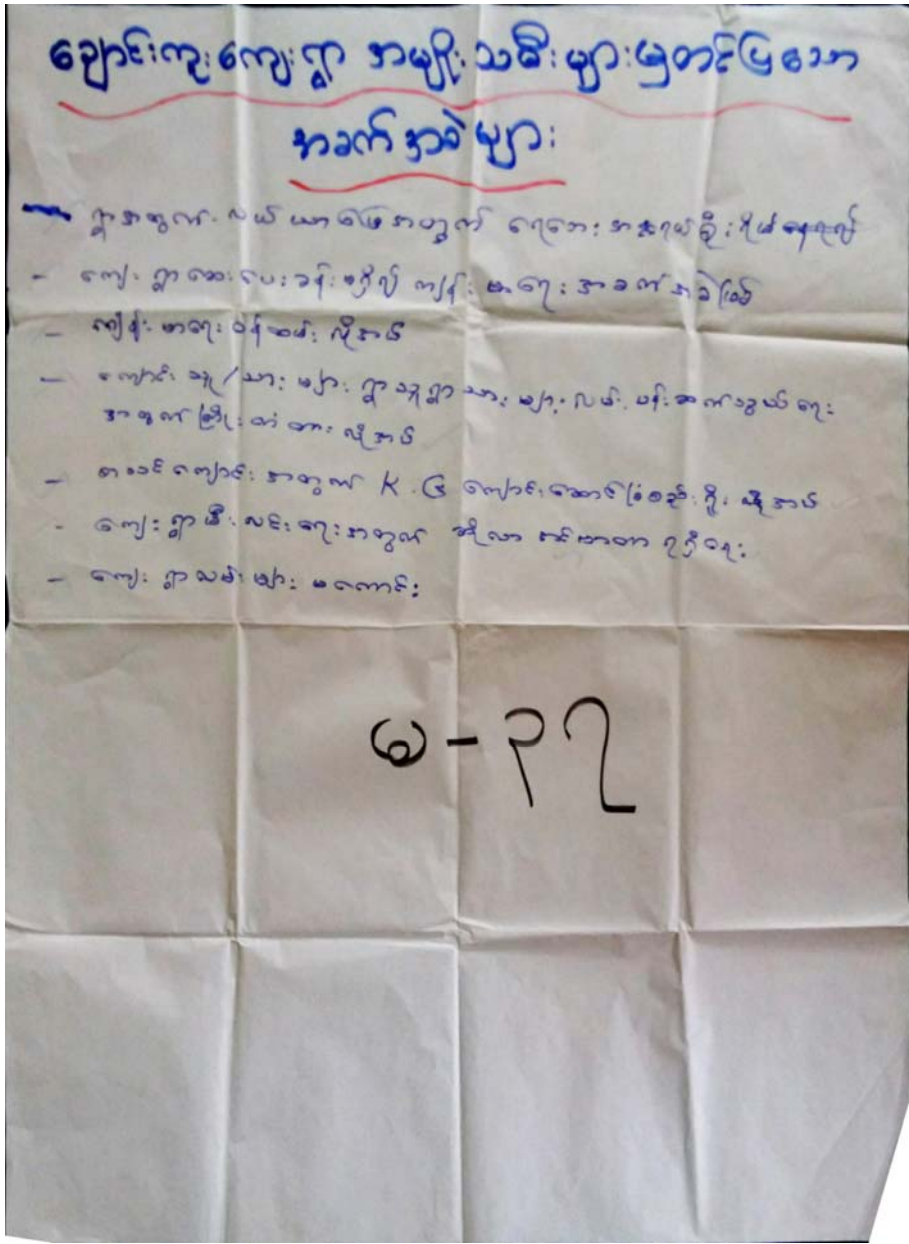 ချောင်းကူးကျေးရွာ အမျိုးသမီးများမှတင်ပြသော
အခက်အခဲများ
- ရွာအတွက် လယ်ယာမြေအတွက် ရေဘေးအန္တရာယ်စိုးရိမ်နေရလို့
- ကျေးရွာဆေးပေးခန်းမရှိလို့ ကျန်းမာရေးအခက်အခဲဖြစ်
- ကျန်းမာရေးဝန်ထမ်းလိုအပ်
- ကျောင်းသူ/သားများ ရွာသူရွာသားများ လမ်းပန်းဆက်သွယ်ရေး
အတွက် ကြိုးတံတားလိုအပ်
- စာသင်ကျောင်းအတွက် K.G ကျောင်းဆောင်ခြံစည်းရိုးလိုအပ်
- ကျေးရွာမီးလင်းရေးအတွက် ဆိုလာ ရရှိရေး
- ကျေးရွာလမ်းများမကောင်း
မ-၃၇